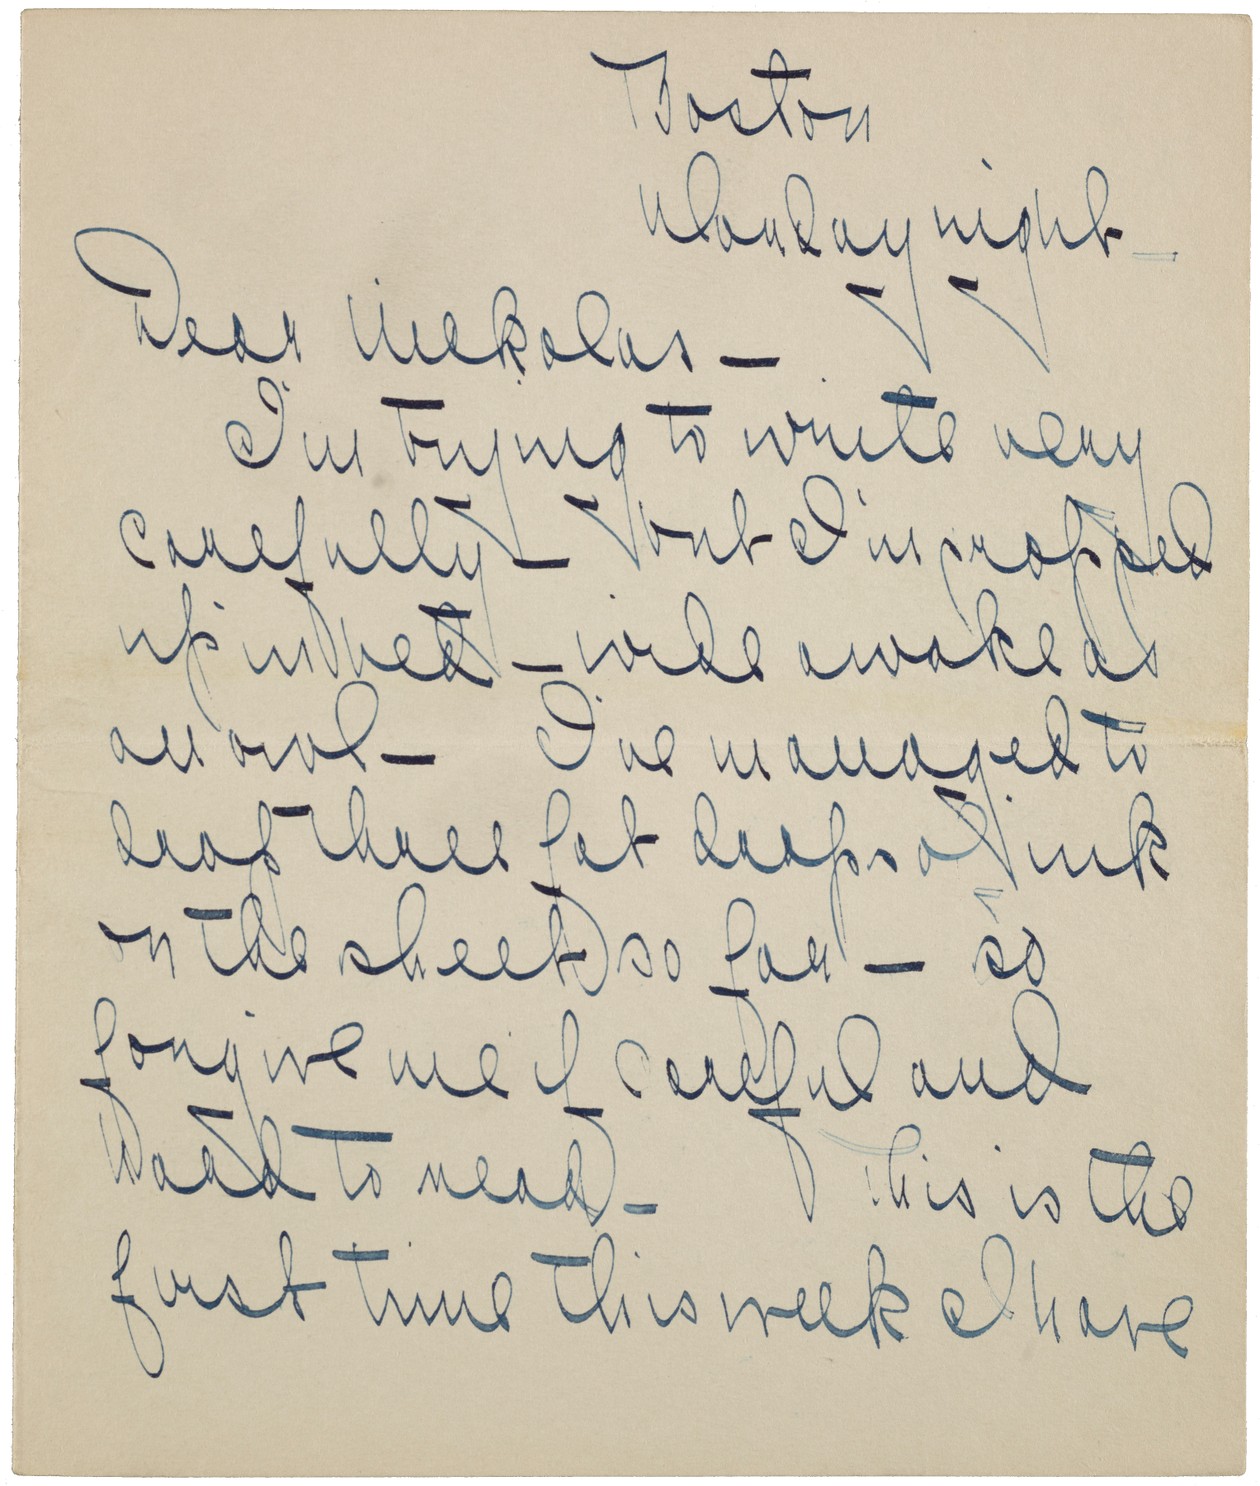 Boston
Monday night –
Dear Nickolas –
I'm trying to write very
carefully – but I'm propped
up in bed – wide awake as
an owl – I've managed to
drop three fat drops of ink
on the sheet so far – so
forgive me if careful and
hard to read –   This is the
first time this week I have